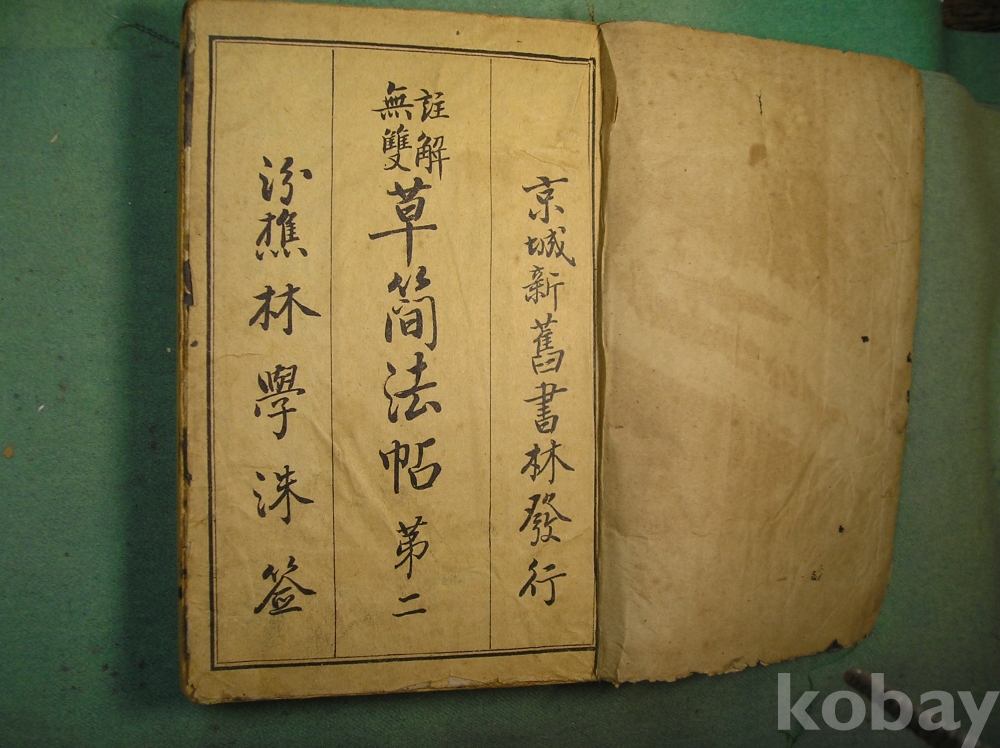 京城新舊書林發行
註解
無雙
草簡法帖 第二
汾樵林學洙签
kobay